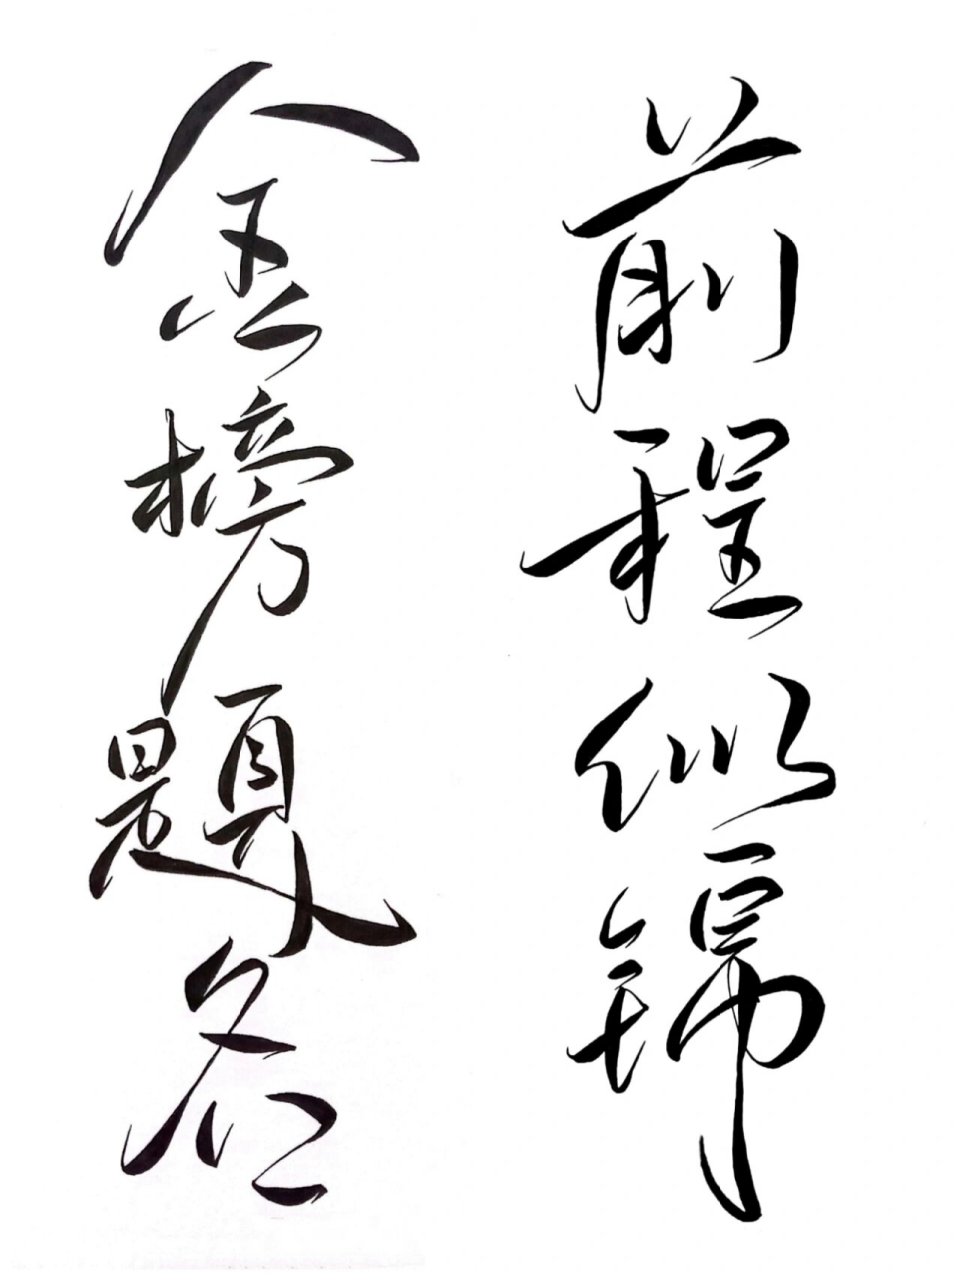 前程似锦
金榜题名